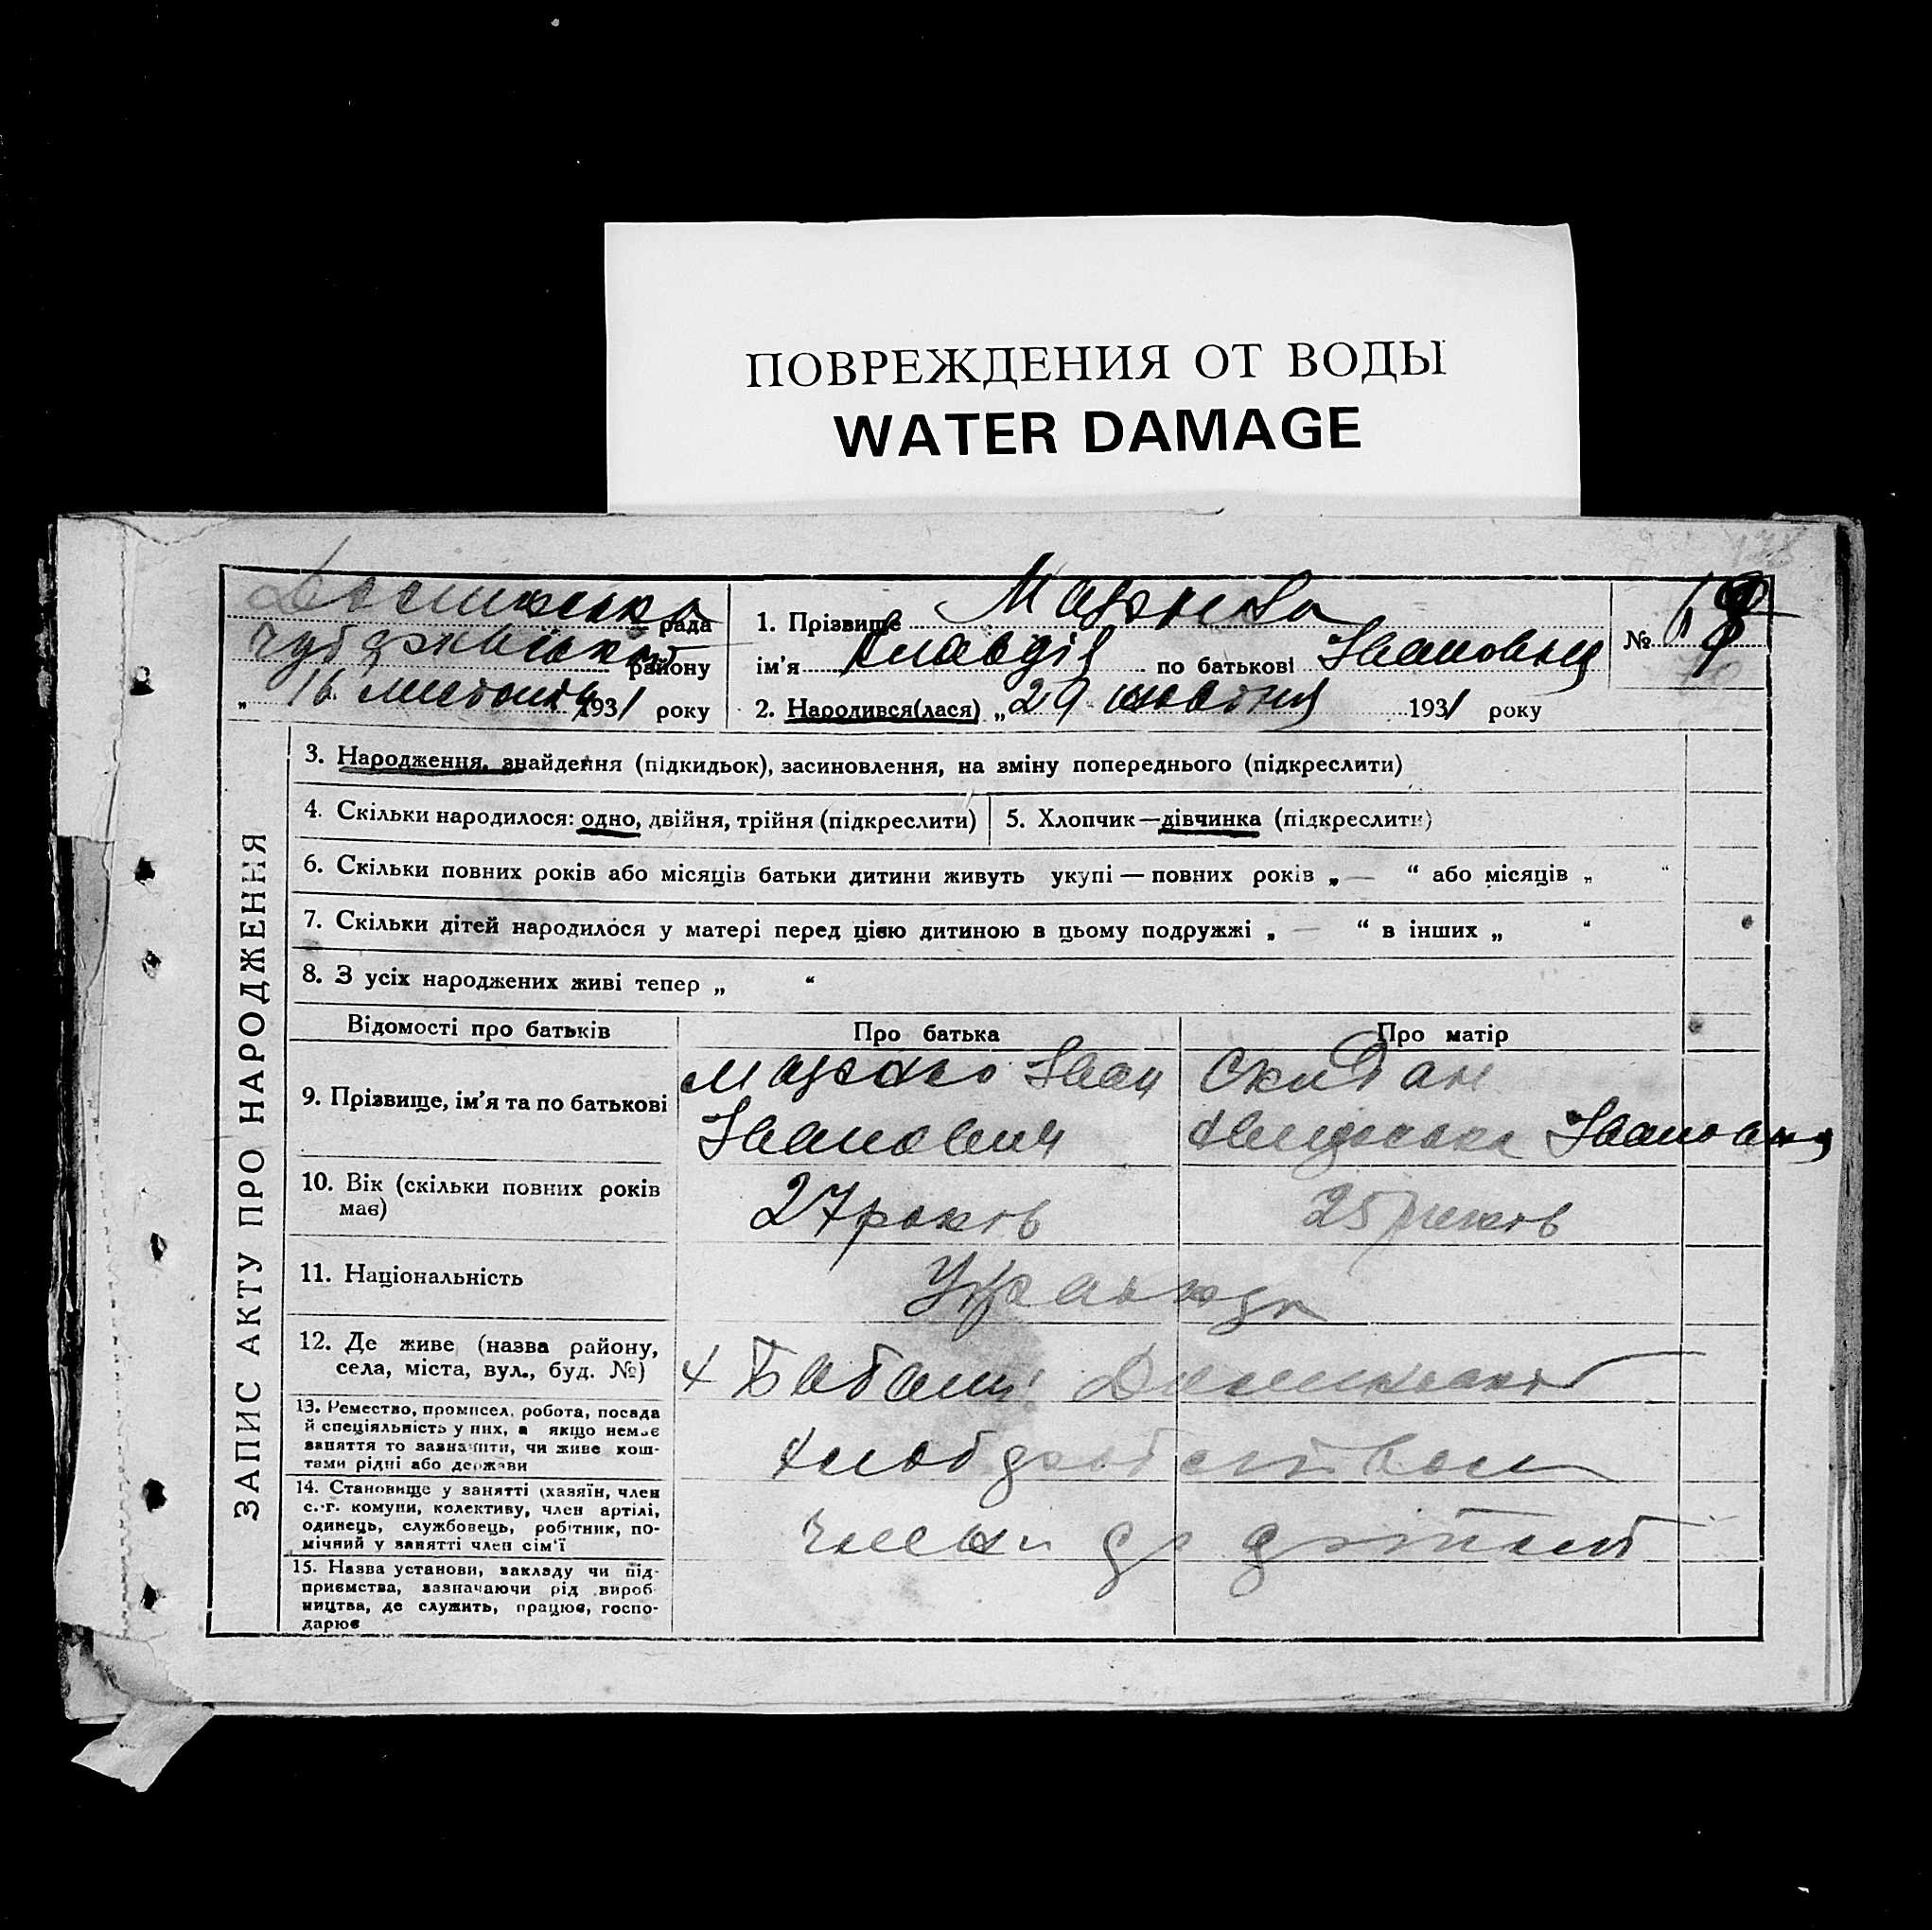 ПОВРЕЖДЕНИЯ ОТ ВОДЫ
WATER DAMAGE
рада
району
„ 16 листопада 1931 року
1. Прізвище
ім'я Клавдія по батькові Івановна
2. Народився(лася) „29 жовтня 1931 року
№
ЗАПИС АКТУ ПРО НАРОДЖЕННЯ
3. Народження, знайдення (підкидьок), засиновлення, на зміну попереднього (підкреслити)
4. Скільки народилося: одно, двійня, трійня (підкреслити)
5. Хлопчик—дівчинка (підкреслити)
6. Скільки повних років або місяців батьки дитини живуть укупі — повних років „ — “ або місяців „ “
7. Скільки дітей народилося у матері перед цією дитиною в цьому подружжі „ — “ в інших „ “
8. З усіх народжених живі тепер „ “
Відомості про батьків
Про батька
Про матір
9. Прізвище, ім'я та по батькові
Іван
Іванович
Скидан
Івановна
10. Вік (скільки повних років
має)
27 років
25 років
11. Національність
12. Де живе (назва району,
села, міста, вул., буд. №)
13. Ремество, промисел, робота, посада
й спеціяльність у них, а якщо немає
заняття то зазначити, чи живе кош-
тами рідні або держави
хлібробством
14. Становище у занятті (хазяїн, член
с.-г. комуни, колективу, член артілі,
одинець, службовець, робітник, по-
мічний у занятті член сім'ї
15. Назва установи, закладу чи під-
приємства, зазначаючи рід вироб-
ництва, де служить, працює, госпо-
дарює